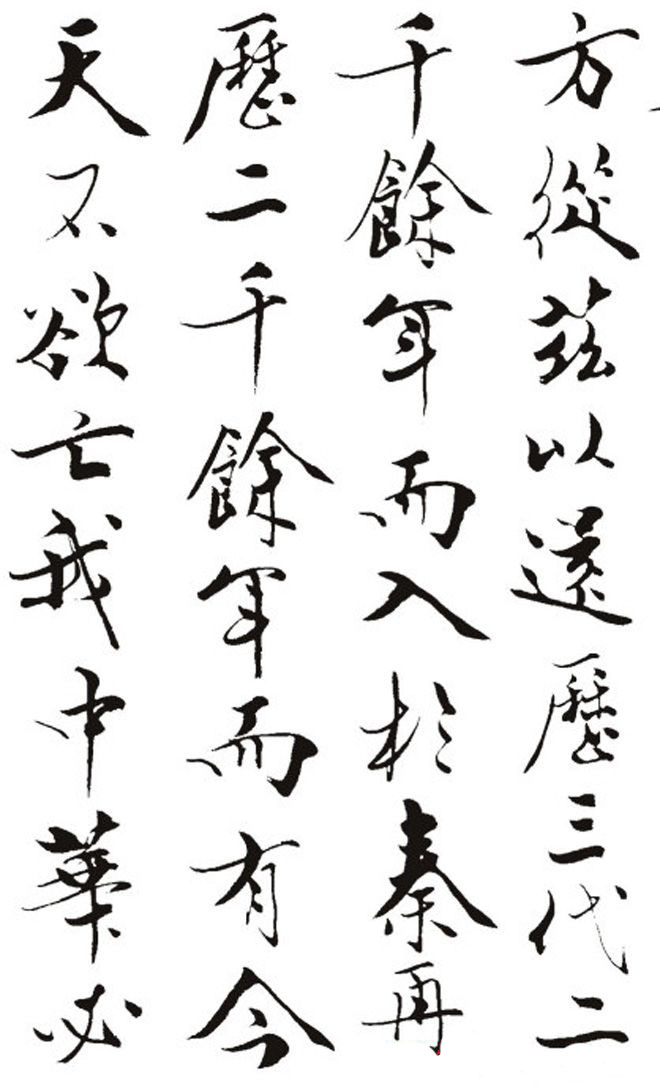 方從茲以還歷三代二
千餘年而入於秦再
歷二千餘年而有今
天不欲亡我中華必